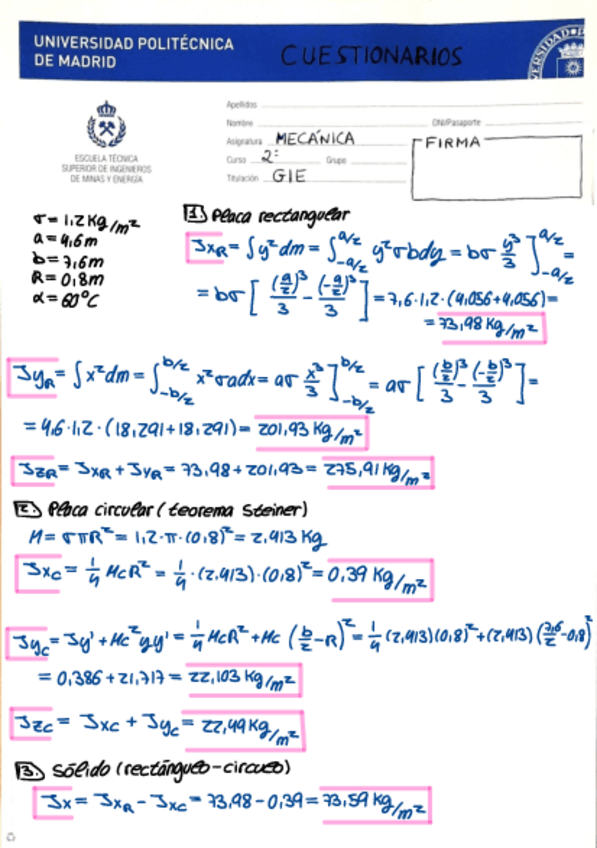 UNIVERSIDAD POLITÉCNICA
DE MADRID
CUESTIONARIOS
ESCUELA TÉCNICA
SUPERIOR DE INGENIEROS
DE MINAS Y ENERGÍA
Apellidos
Nombre DNI/Pasaporte
Asignatura MECÁNICA
Curso 2º Grupo
Titulación GIE
FIRMA
σ = 1,2 Kg/m²
a = 4,6m
b = 7,6m
R = 0,8m
α = 60°C
1. Placa rectangular
JxR = ∫y²dm = ∫_{-a/2}^{a/2} y²σbdy = bσ y³/3 ]_{-a/2}^{a/2} =
= bσ [ (a/2)³/3 - (-a/2)³/3 ] = 7,6·1,2·(4,056+4,056) =
= 73,98 Kg/m²
JyR = ∫x²dm = ∫_{-b/2}^{b/2} x²σadx = aσ x³/3 ]_{-b/2}^{b/2} = aσ [ (b/2)³/3 - (-b/2)³/3 ] =
= 4,6·1,2·(18,291+18,291) = 201,93 Kg/m²
JzR = JxR + JyR = 73,98 + 201,93 = 275,91 Kg/m²
2. Placa circular (teorema Steiner)
M = σπR² = 1,2·π·(0,8)² = 2,413 Kg
Jxc = 1/4 McR² = 1/4·(2,413)·(0,8)² = 0,39 Kg/m²
Jyc = Jy' + Mc²yy' = 1/4 McR² + Mc (b/2 - R)² = 1/4 (2,413)(0,8)² + (2,413)(7,6/2 - 0,8)²
= 0,386 + 21,717 = 22,103 Kg/m²
Jzc = Jxc + Jyc = 22,49 Kg/m²
3. Sólido (rectángulo-circulo)
Jx = JxR - Jxc = 73,98 - 0,39 = 73,59 Kg/m²